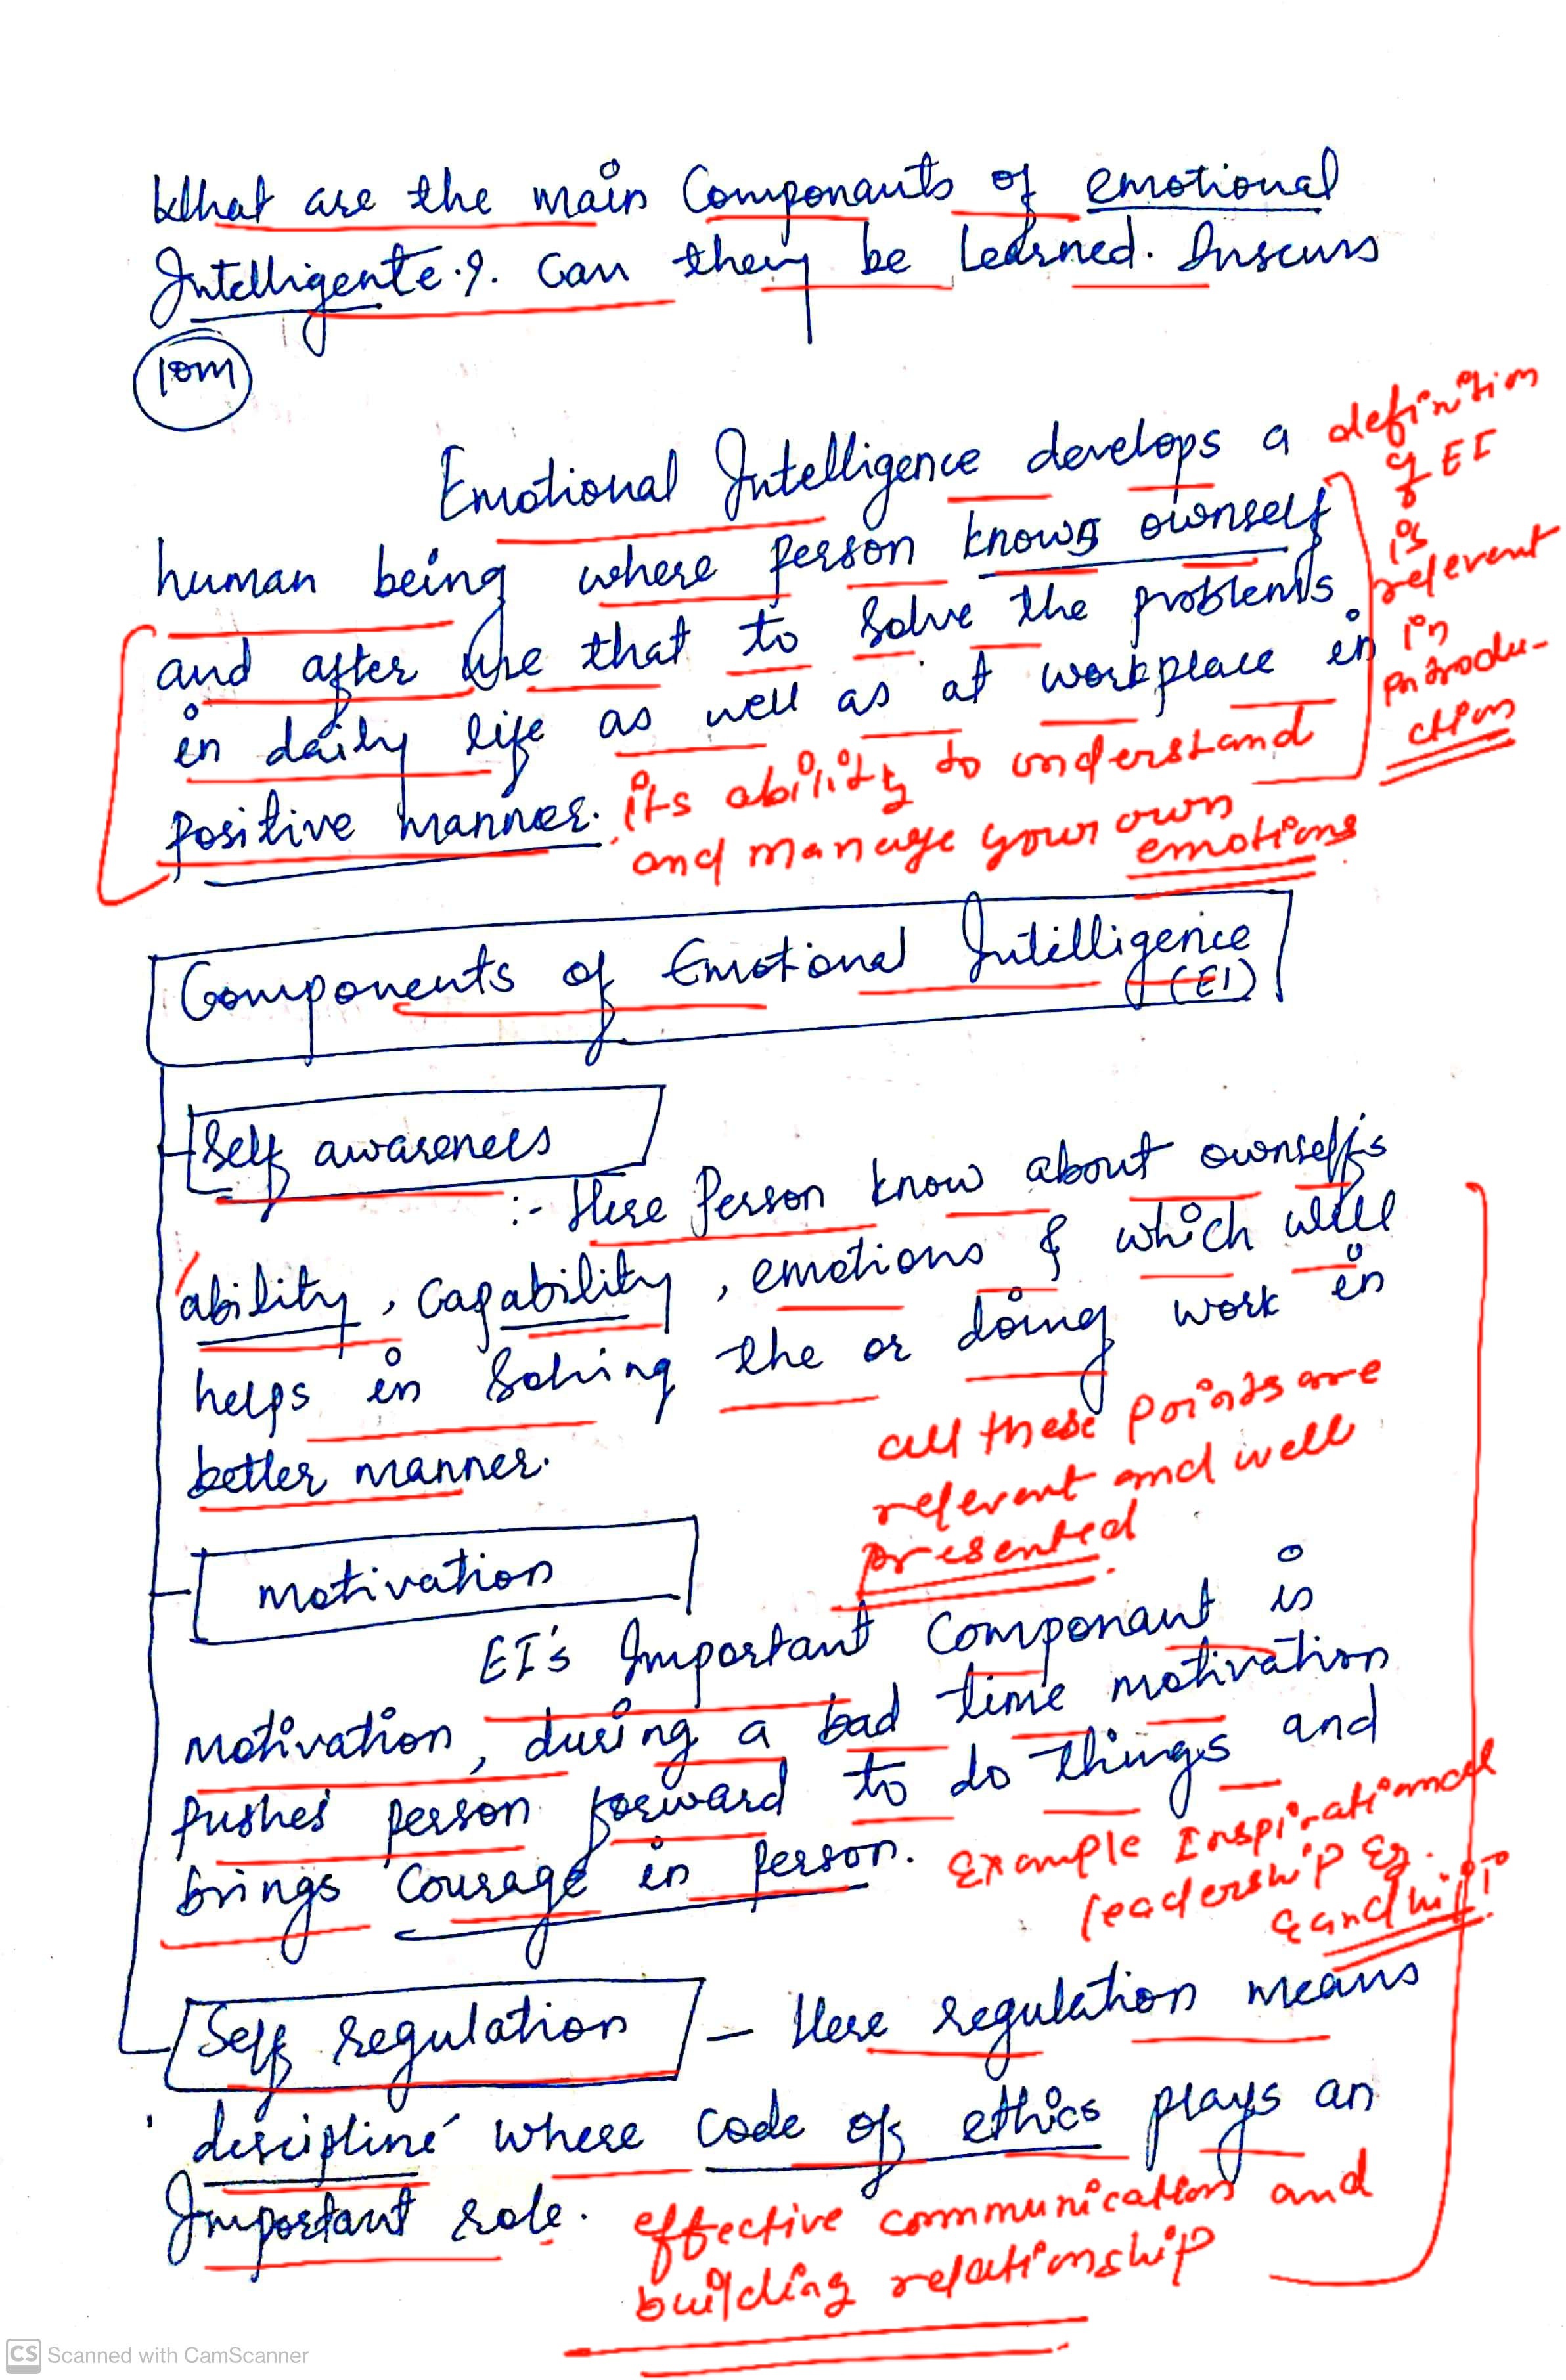 What are the main Componants of emotional
Intelligente.?. Can they be learned. Discuss
10m
Emotional Intelligence develops a
human being where person knows ownself
and after use that to solve the problems
in daily life as well as at workplace in
positive manner.
definition
of EI
is
relevent
in
introdu-
ction
its ability to understand
and manage your own
emotions
Components of Emotional Intelligence
(EI)
Self awareness
:- Here Person know about ownself's
ability, capability, emotions & which will
helps in Solving the or doing work in
better manner.
all these points are
relevent and well
presented
motivation
EI's Important Componant is
motivation, during a bad time motivation
pushes person forward to do things and
brings courage in person.
Example Inspirational
leadership Eg.
Gandhiji
Self regulation - Here regulation means
'discipline' where code of ethics plays an
Important role.
effective communication and
building relationship
CS Scanned with CamScanner